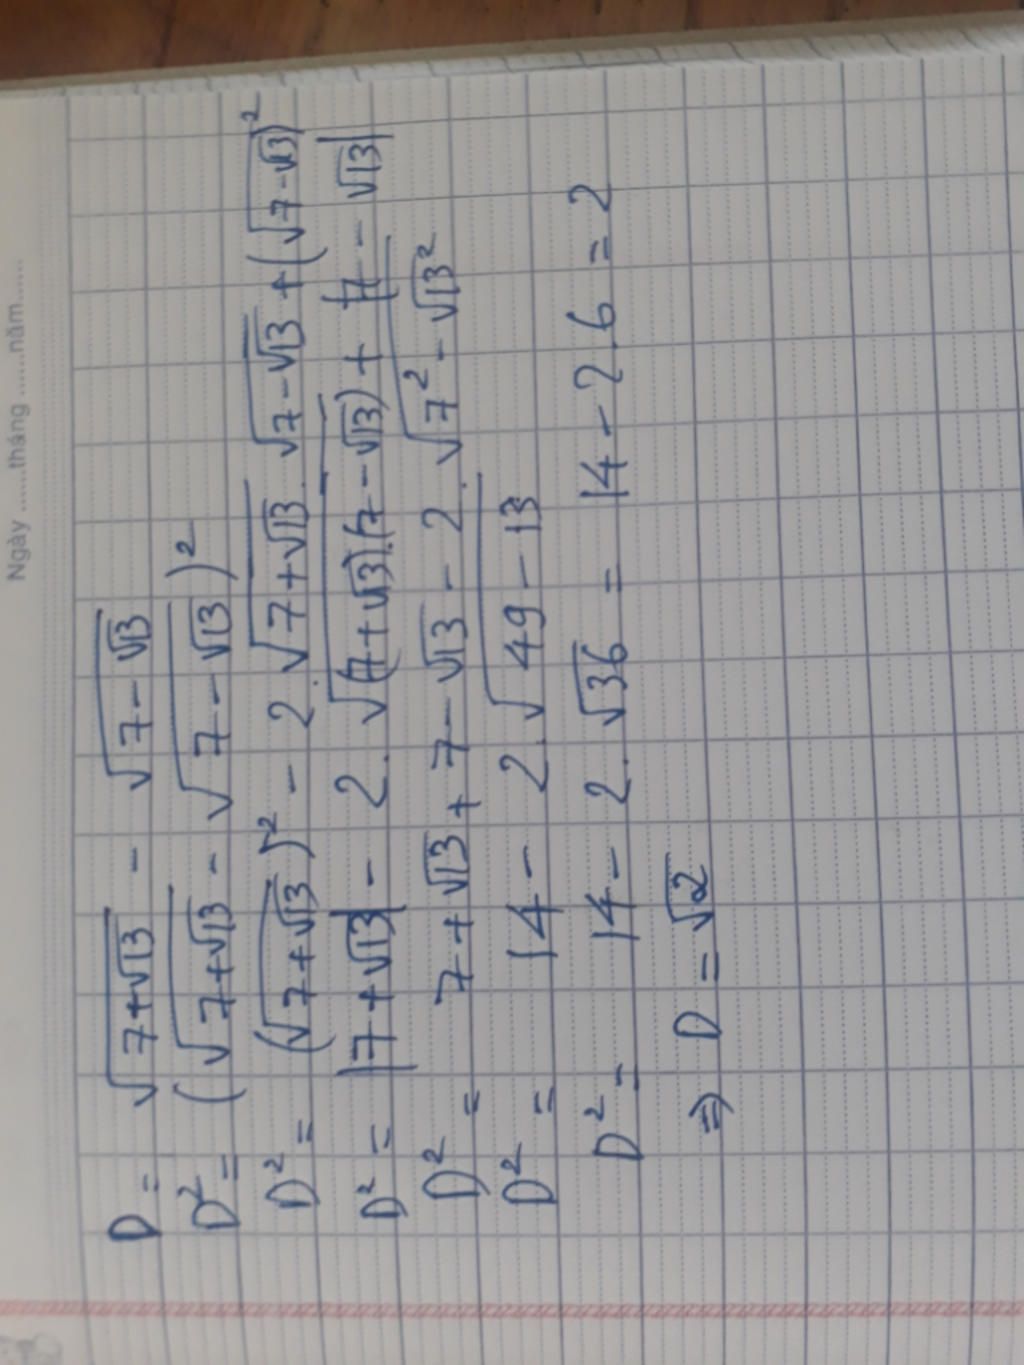 Ngày ..... tháng ..... năm .....
D = √(7+√13) - √(7-√13)
D² = (√(7+√13) - √(7-√13))²
D² = (√(7+√13))² - 2.√(7+√13).√(7-√13) + (√(7-√13))²
D² = |7+√13| - 2.√((7+√13).(7-√13)) + |7-√13|
D² = 7+√13 + 7-√13 - 2.√(7²-√13²)
D² = 14 - 2.√(49-13)
D² = 14 - 2.√36 = 14 - 2.6 = 2
⇒ D = √2